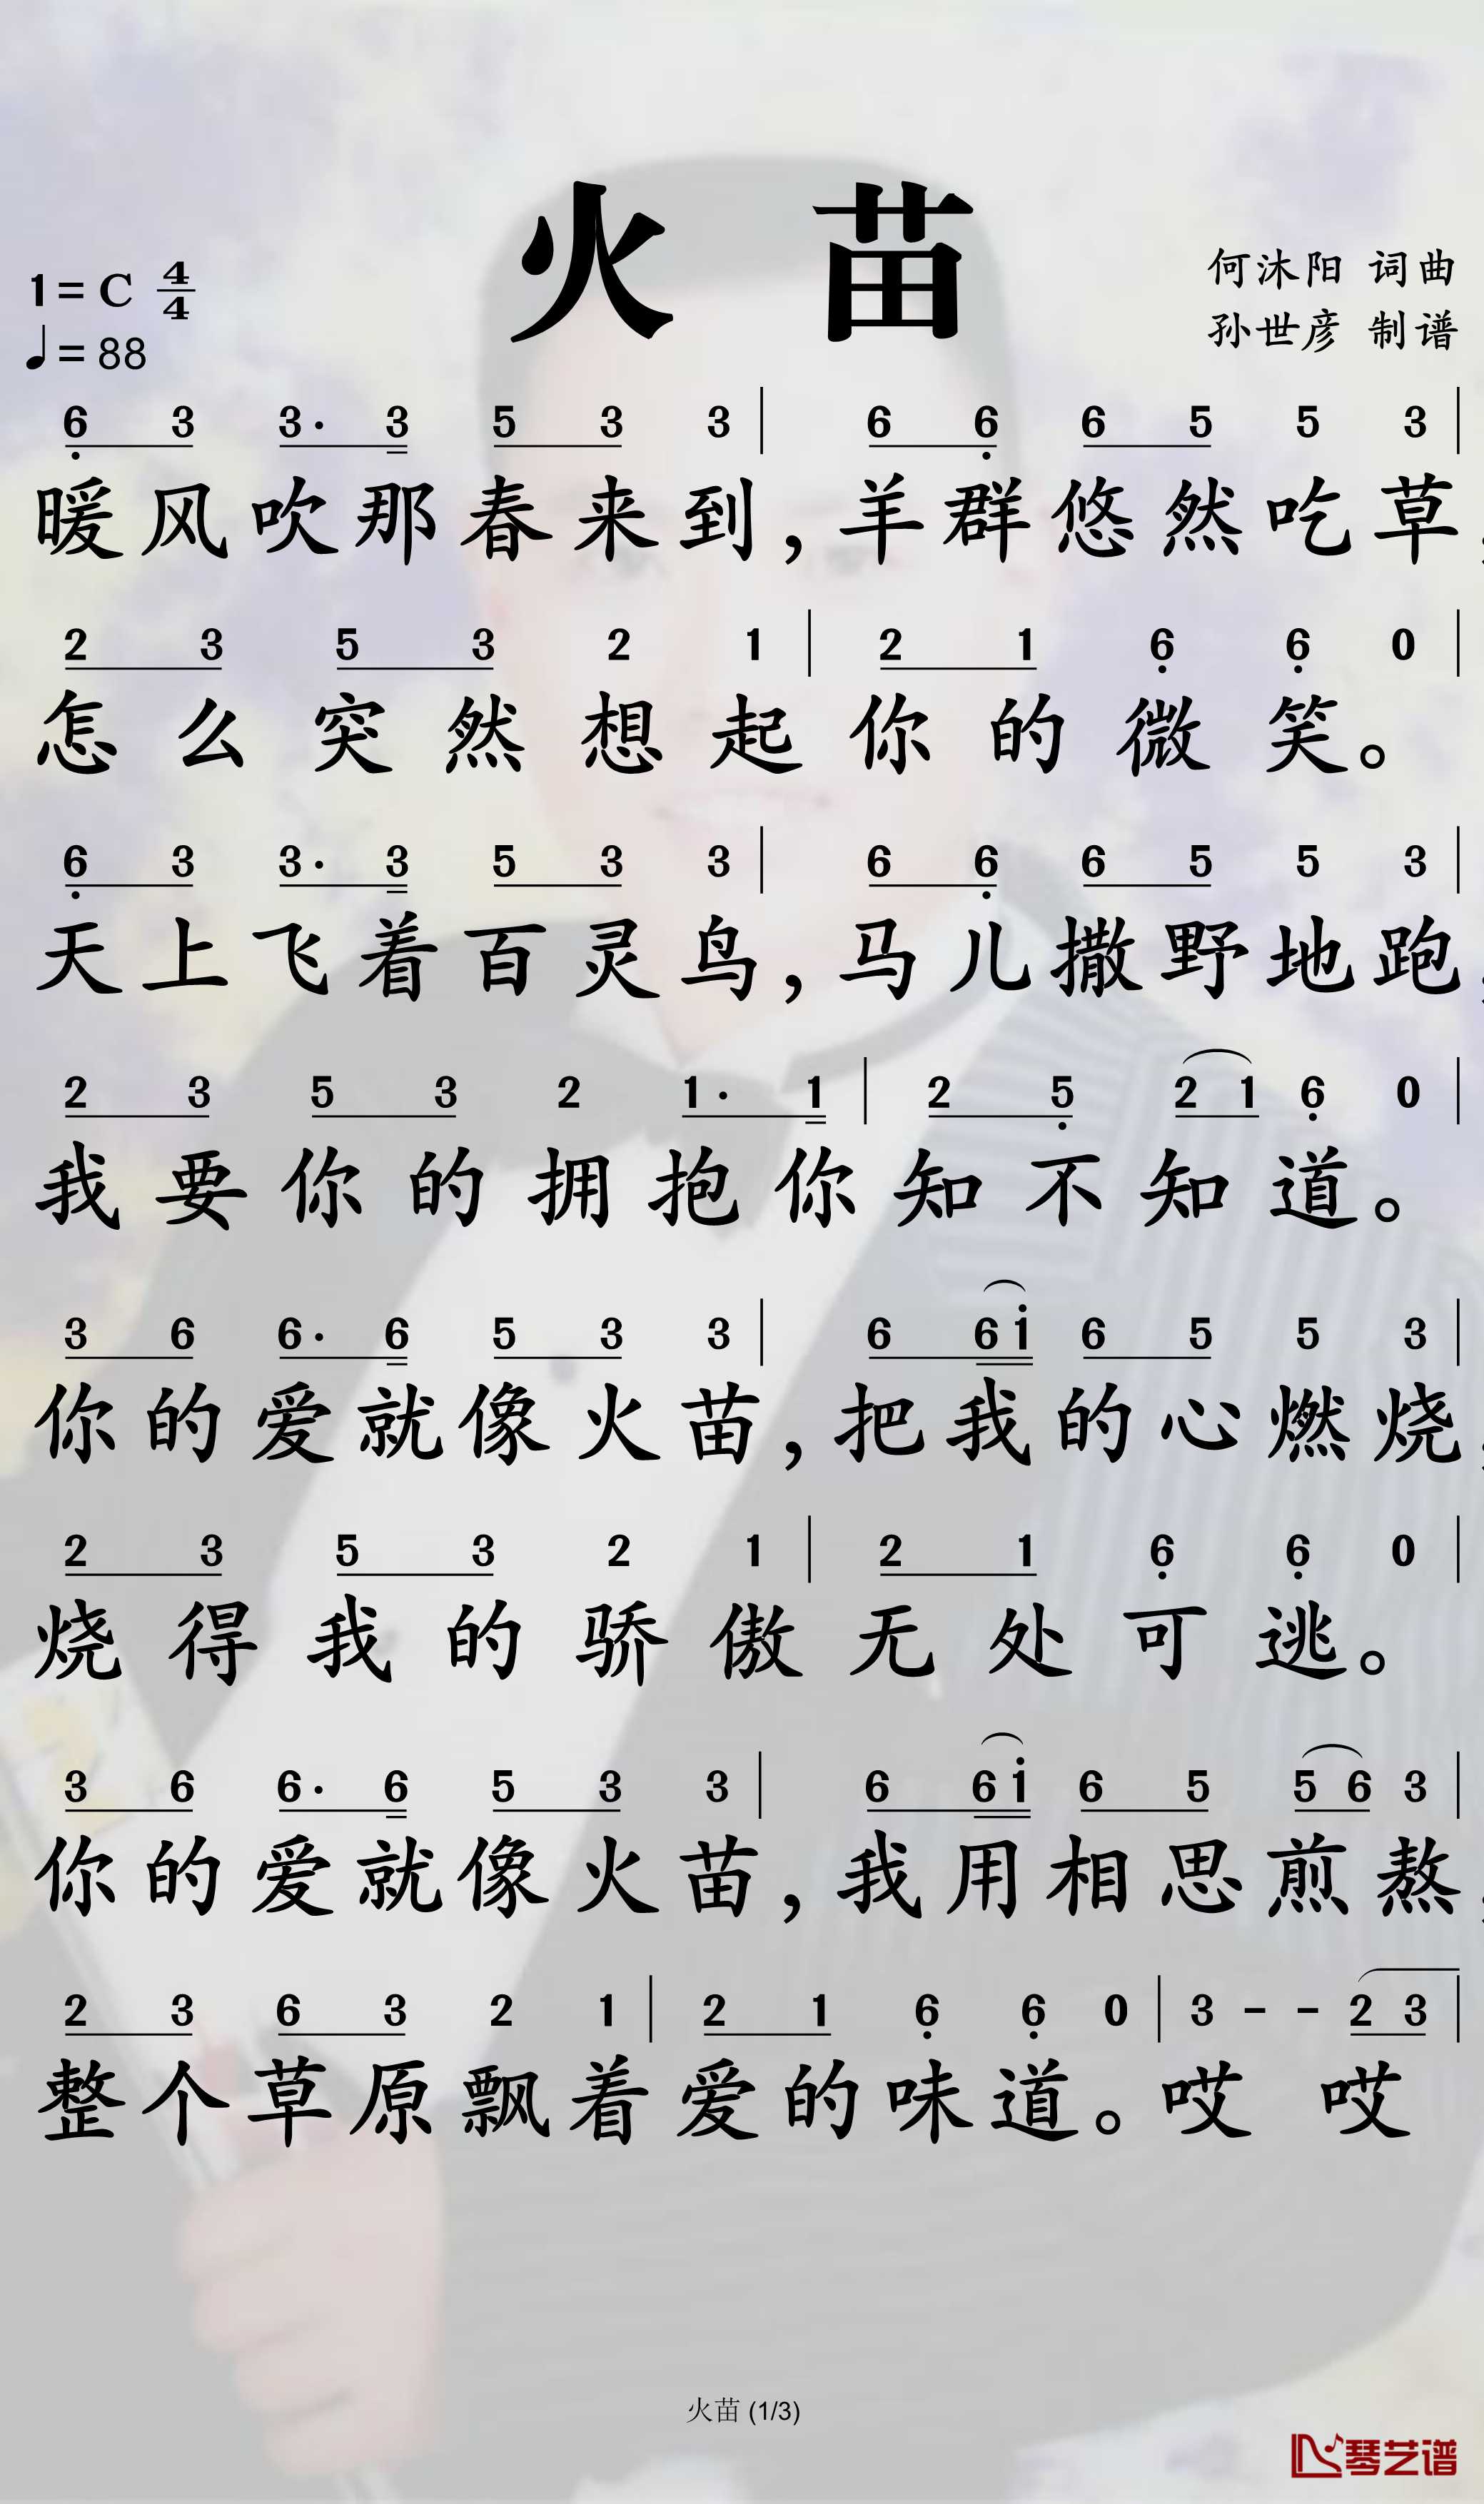 火 苗
1=C 4/4
何沐阳 词曲
♩=88
孙世彦 制谱
6̣ 3 3· 3 5 3 3 | 6 6̣ 6 5 5 3 |
暖风吹那春来到，羊群悠然吃草，
2 3 5 3 2 1 | 2 1 6̣ 6̣ 0 |
怎么突然想起你的微笑。
6̣ 3 3· 3 5 3 3 | 6 6̣ 6 5 5 3 |
天上飞着百灵鸟，马儿撒野地跑，
2 3 5 3 2 1· 1 | 2 5̣ 2 1 6̣ 0 |
我要你的拥抱你知不知道。
3 6 6· 6 5 3 3 | 6 6 1̇ 6 5 5 3 |
你的爱就像火苗，把我的心燃烧，
2 3 5 3 2 1 | 2 1 6̣ 6̣ 0 |
烧得我的骄傲无处可逃。
3 6 6· 6 5 3 3 | 6 6 1̇ 6 5 5 6 3 |
你的爱就像火苗，我用相思煎熬，
2 3 6 3 2 1 | 2 1 6̣ 6̣ 0 | 3 - - 2 3 |
整个草原飘着爱的味道。哎 哎
火苗 (1/3)
琴艺谱